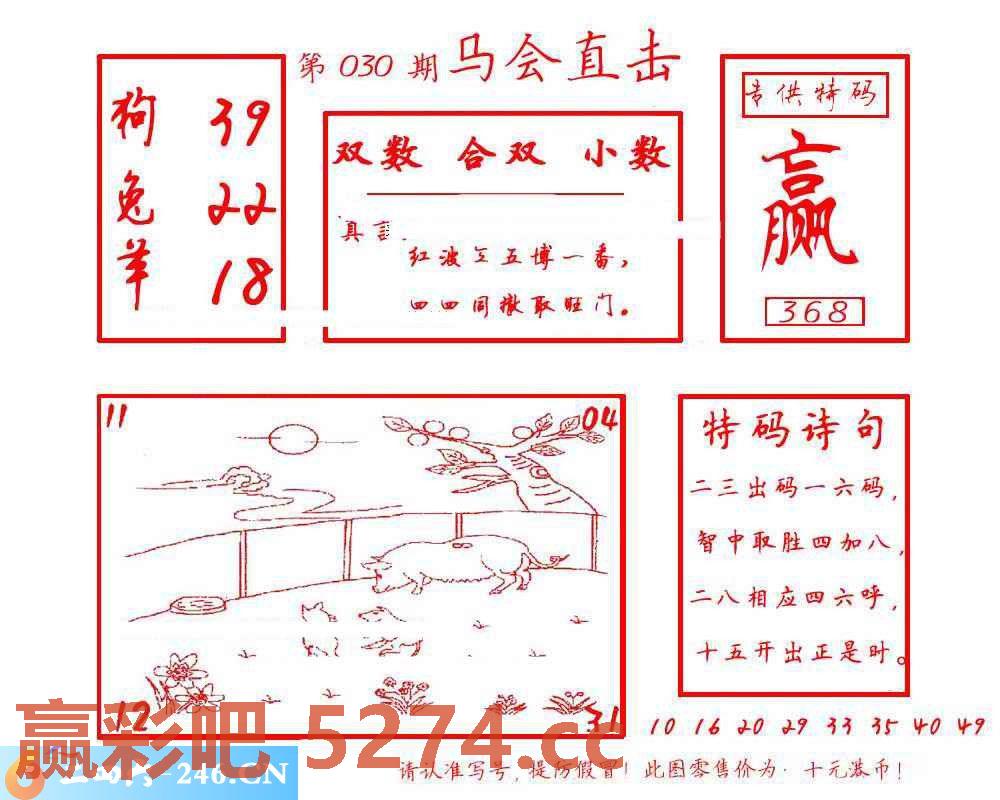 第 030 期 马会直击
狗 39
兔 22
羊 18
双数 合双 小数
真言
红波 五博一番，
四四同撤取旺门。
专供特码
赢
368
11
04
12
31
特码诗句
二三出码一六码，
智中取胜四加八，
二八相应四六呼，
十五开出正是时。
10 16 20 29 33 35 40 49
赢彩吧 5274.cc
-246.CN
请认准写号，提防假冒！此图零售价为：十元港币！